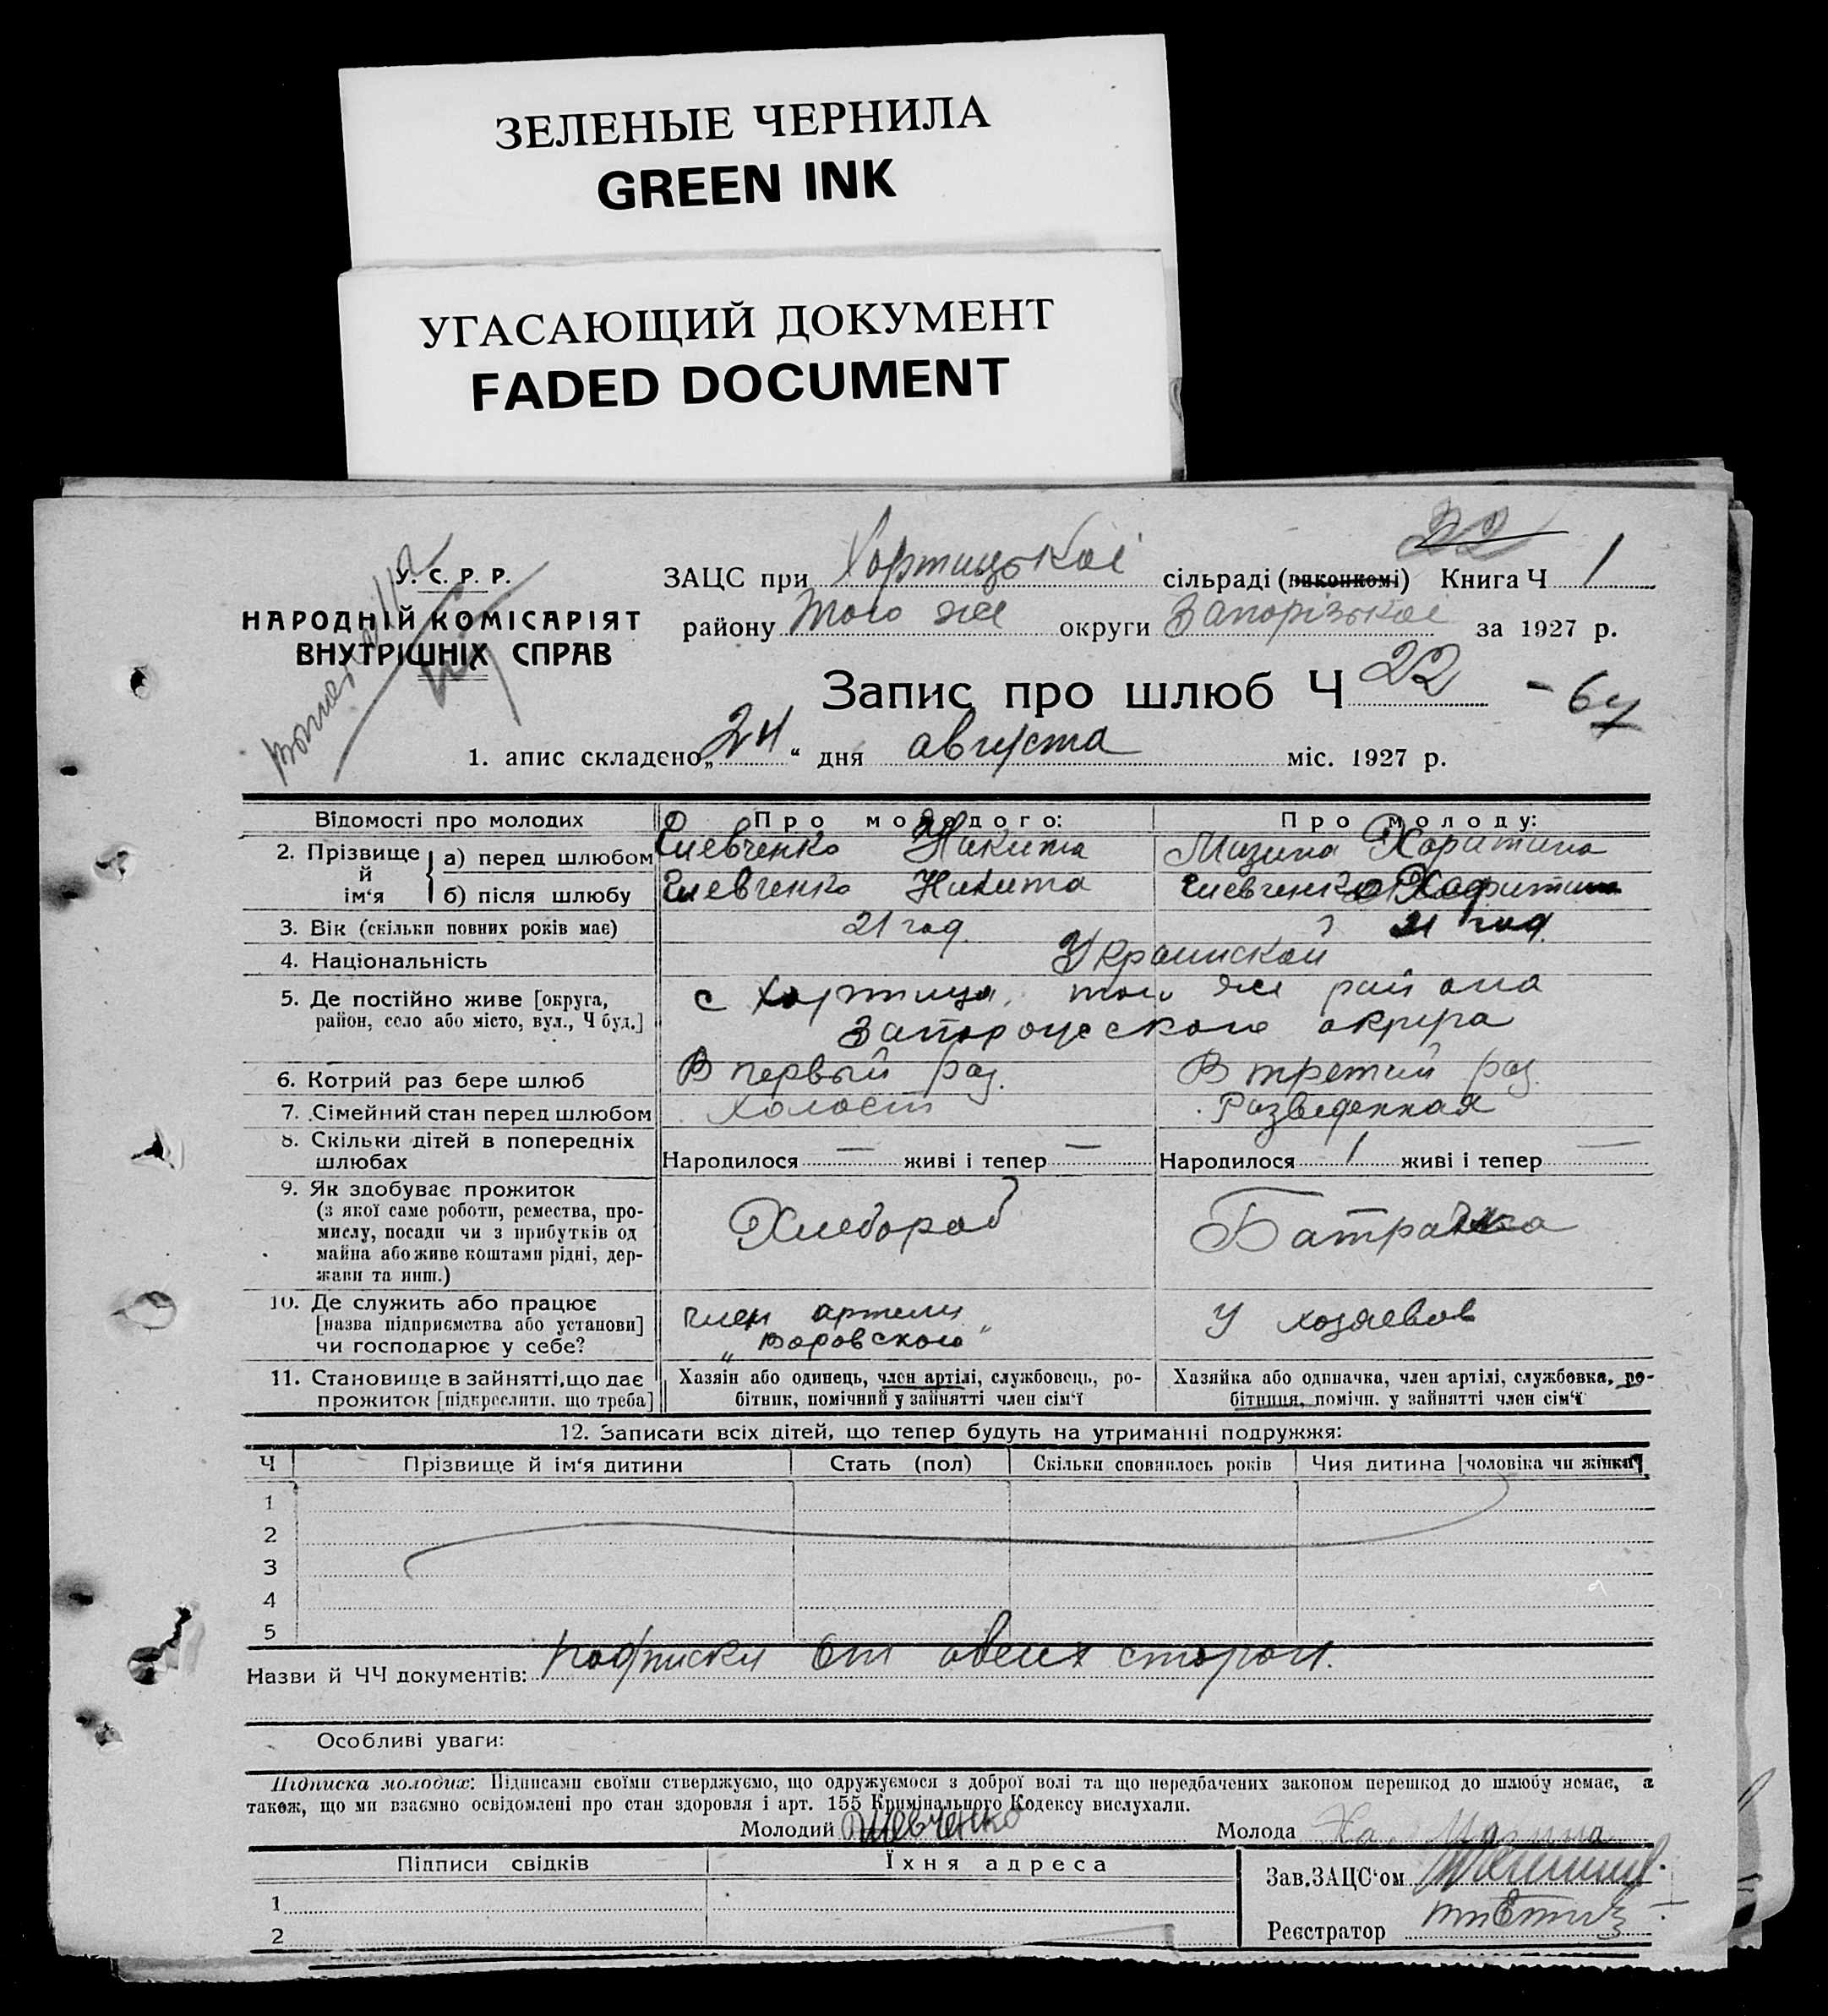 ЗЕЛЕНЫЕ ЧЕРНИЛА
GREEN INK
УГАСАЮЩИЙ ДОКУМЕНТ
FADED DOCUMENT
22
У. С. Р. Р.
НАРОДНІЙ КОМІСАРІЯТ
ВНУТРІШНІХ СПРАВ
ЗАЦС при Хортицькоі сільраді (виконкомі) Книга Ч 1
району того же округи Запорізькоі за 1927 р.
Запис про шлюб Ч 22 - 64
1. апис складено „24“ дня августа міс. 1927 р.
Відомості про молодих Про молодого: Про молоду:
2. Прізвище й ім‘я а) перед шлюбом Шевченко Никита Мизина Харитина
б) після шлюбу Шевченко Никита Шевченко Харитина
3. Вік (скільки повних років має) 21 год. 21 год.
4. Національність Украинской
5. Де постійно живе [округа, с Хортица, того же района
район, село або місто, вул., Ч буд.] Запорожского округа
6. Котрий раз бере шлюб В первый раз. В третий раз.
7. Сімейний стан перед шлюбом Холост Разведенная
8. Скільки дітей в попередніх
шлюбах Народилося — живі і тепер — Народилося 1 живі і тепер —
9. Як здобуває прожиток
(з якої саме роботи, ремества, про-
мислу, посади чи з прибутків од Хлебороб Батрачка
майна або живе коштами рідні, дер-
жави та инш.)
10. Де служить або працює член артели У хозяевов
[назва підприємства або установи] „Воровского“
чи господарює у себе?
11. Становище в зайнятті, що дає Хазяїн або одинець, член артілі, службовець, ро- Хазяйка або одиначка, член артілі, службовка, ро-
прожиток [підкреслити. що треба] бітник, помічний у зайнятті член сім‘ї бітниця, помічн. у зайнятті член сім‘ї
12. Записати всіх дітей, що тепер будуть на утриманні подружжя:
Ч Прізвище й ім‘я дитини Стать (пол) Скільки сповнилось років Чия дитина [чоловіка чи жінки]
1
2
3
4
5
Назви й ЧЧ документів: подписки от обеих сторон.
Особливі уваги:
Підписка молодих: Підписами своїми стверджуємо, що одружуємося з доброї волі та що передбачених законом перешкод до шлюбу немає, а
також, що ми взаємно освідомлені про стан здоровля і арт. 155 Кримінального Кодексу вислухали.
Молодий Шевченко Молода Ха. Мизина
Підписи свідків Їхня адреса Зав. ЗАЦС‘ом
1
Реєстратор
2